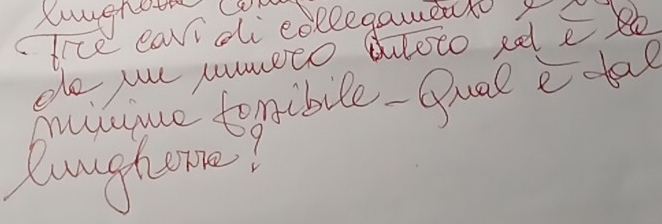 lunghezza com
Tre cavi di collegamento è
da un numero intero ed è la
minima possibile - Qual è tal
lunghezza?